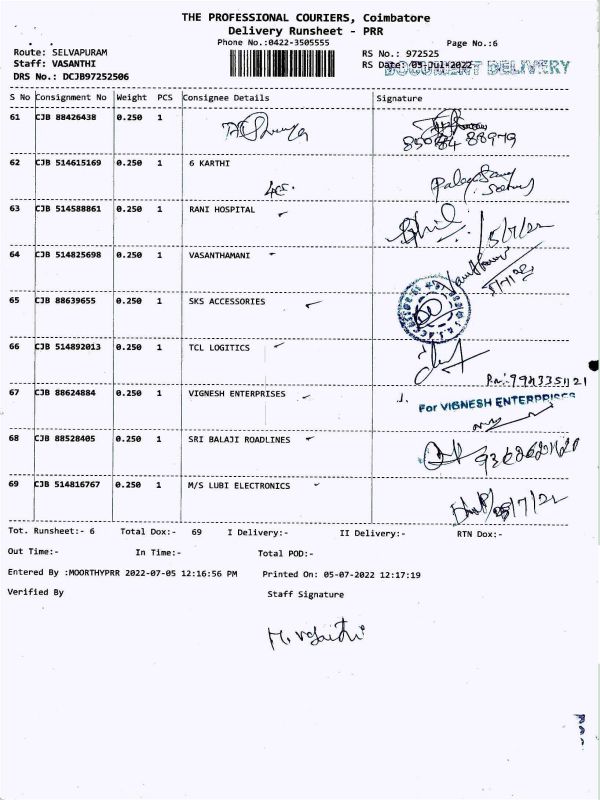 THE PROFESSIONAL COURIERS, Coimbatore
Delivery Runsheet - PRR
Phone No.:0422-3505555
Page No.:6
Route: SELVAPURAM
RS No.: 972525
Staff: VASANTHI
RS Date: 05-Jul-2022
DOCUMENT DELIVERY
DRS No.: DCJB97252506
S No Consignment No Weight PCS Consignee Details Signature
61 CJB 88426438 0.250 1
62 CJB 514615169 0.250 1 6 KARTHI
63 CJB 514588861 0.250 1 RANI HOSPITAL
5/7/22
64 CJB 514825698 0.250 1 VASANTHAMANI
65 CJB 88639655 0.250 1 SKS ACCESSORIES
66 CJB 514892013 0.250 1 TCL LOGITICS
67 CJB 88624884 0.250 1 VIGNESH ENTERPRISES
For VIGNESH ENTERPRISES
68 CJB 88528405 0.250 1 SRI BALAJI ROADLINES
69 CJB 514816767 0.250 1 M/S LUBI ELECTRONICS
Tot. Runsheet:- 6 Total Dox:- 69 I Delivery:- II Delivery:- RTN Dox:-
Out Time:- In Time:- Total POD:-
Entered By :MOORTHYPRR 2022-07-05 12:16:56 PM Printed On: 05-07-2022 12:17:19
Verified By Staff Signature